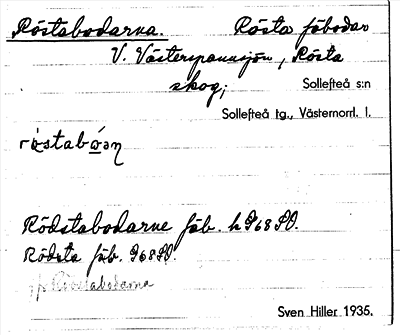 Röstabodarna. Rösta fäbodar
V. Västerspannsjön, Rösta
skog; Sollefteå s:n
Sollefteå tg., Västernorrl. l.
röstabǫ́ən
Rödstabodarne fäb. h 968 SO.
Rödsta fäb. 968 SO.
Röstabodarna
Sven Hiller 1935.